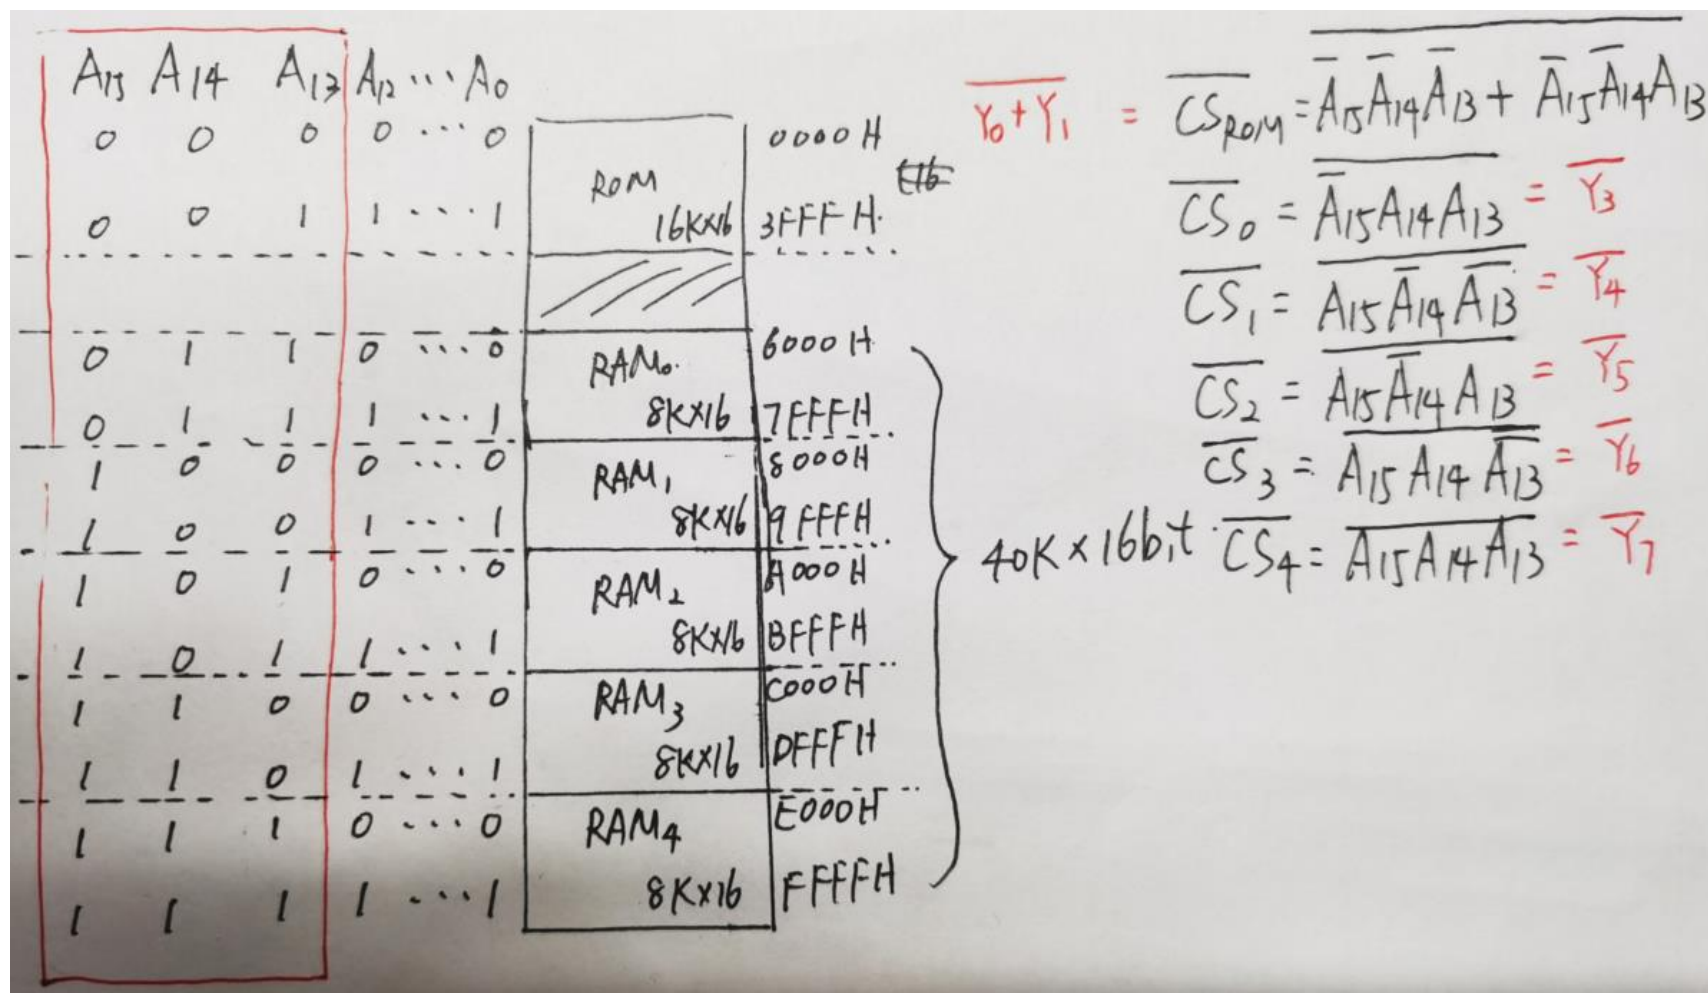 A15 A14 A13 A12 ... A0
0 0 0 0 ... 0
0 0 1 1 ... 1
0 1 1 0 ... 0
0 1 1 1 ... 1
1 0 0 0 ... 0
1 0 0 1 ... 1
1 0 1 0 ... 0
1 0 1 1 ... 1
1 1 0 0 ... 0
1 1 0 1 ... 1
1 1 1 0 ... 0
1 1 1 1 ... 1
ROM
16K×16
0000H
3FFFH.
RAM0.
8K×16
6000H
7FFFH
RAM1
8K×16
8000H
9FFFH
RAM2
8K×16
A000H
BFFFH
RAM3
8K×16
C000H
DFFFH
RAM4
8K×16
E000H
FFFFH
40K×16bit.
\overline{Y0+Y1} = \overline{CS_ROM} = \overline{\overline{A15}\overline{A14}\overline{A13} + \overline{A15}\overline{A14}A13}
\overline{CS0} = \overline{\overline{A15}A14A13} = \overline{Y3}
\overline{CS1} = \overline{A15\overline{A14}\overline{A13}} = \overline{Y4}
\overline{CS2} = \overline{A15\overline{A14}A13} = \overline{Y5}
\overline{CS3} = \overline{A15A14\overline{A13}} = \overline{Y6}
\overline{CS4} = \overline{A15A14A13} = \overline{Y7}